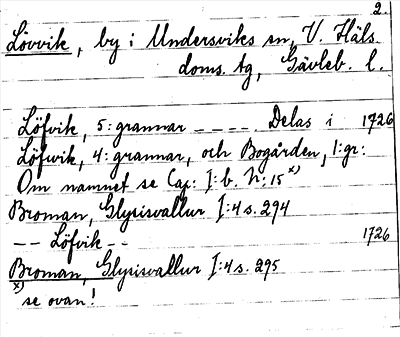 2.
Lövvik, by i Undersviks sn, V. Häls.
doms. tg, Gävleb. l.
Löfvik, 5: grannar _ _ _ _ . Delas i 1726
Löfwik, 4: grannar, och Bogården, 1: gr:
Om namnet se Cap: I: b. N: 15 x)
Broman, Glysisvallur I: 4 s. 294
-- Löfvik -- 1726
Broman, Glysisvallur I: 4 s. 295
x) se ovan!